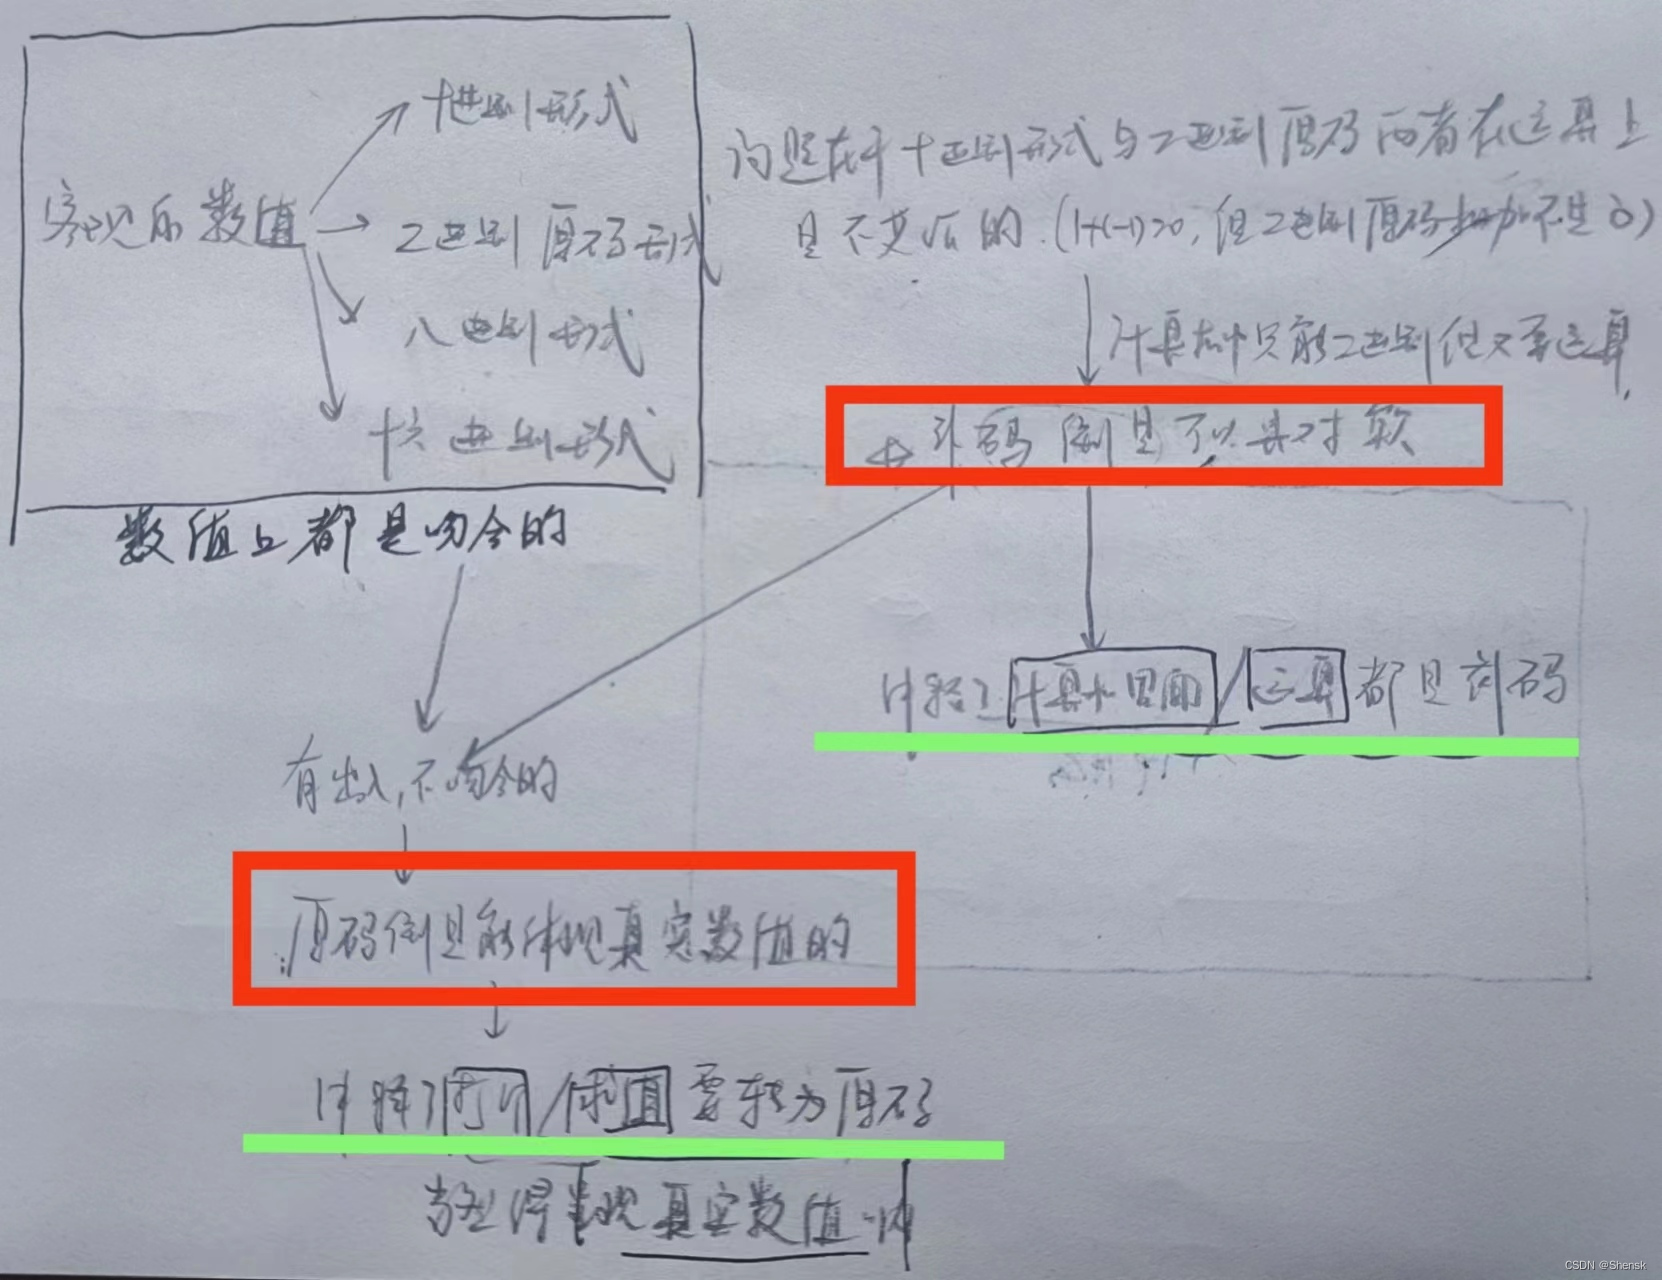 十进制形式
客观的数值
二进制原码形式
八进制形式
十六进制形式
数值上都是吻合的
问题在于十进制形式与二进制原码两者在运算上
是不对应的.(1+(-1)=0,但二进制原码相加不是0)
计算机中只能二进制但又要运算,
补码倒是可以
解释了计算机里面/运算都是补码
有出入,不吻合的
原码倒是能体现真实数值的
解释了打印/求值要转为原码
真实数值
CSDN @Shensk